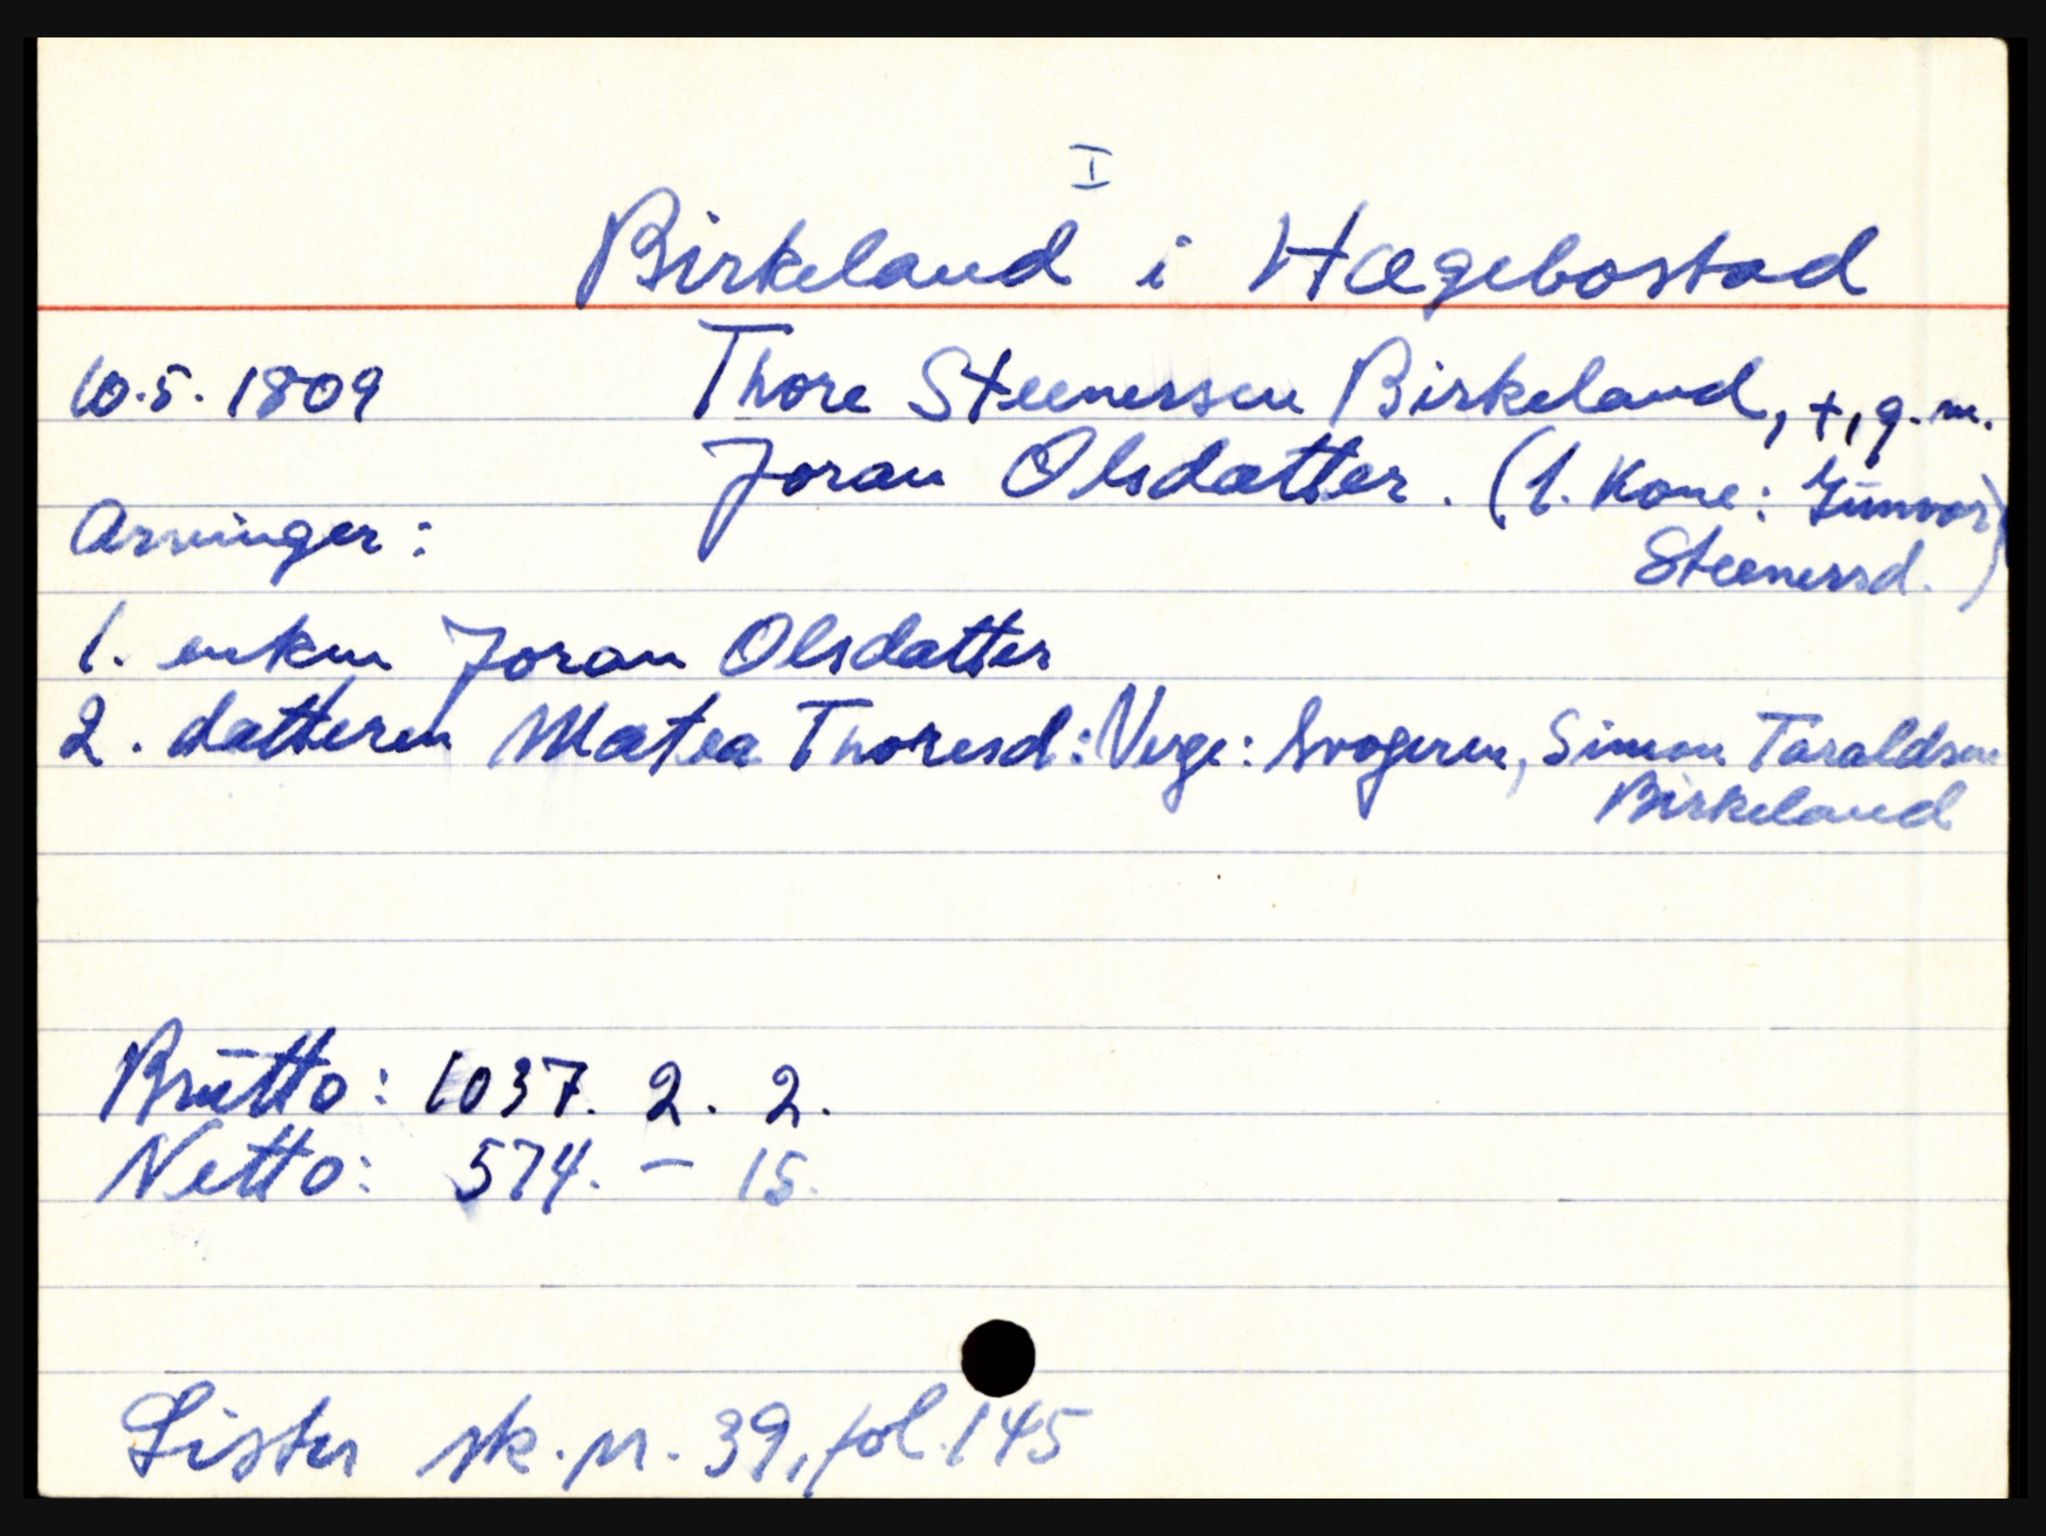 I
Birkeland i Hægebostad
10.5.1809 Thore Steenersen Birkeland, +, g.m.
Joran Olsdatter. (1. Kone: Gunvor
Arvinger: Steenersd.)
1. enken Joran Olsdatter
2. datteren Matea Thoresd: Verge: Svogeren, Simon Taraldsen
Birkeland
Brutto: 1037. 2. 2.
Netto: 574. – 15.
Lister sk.pr. 39, fol. 145